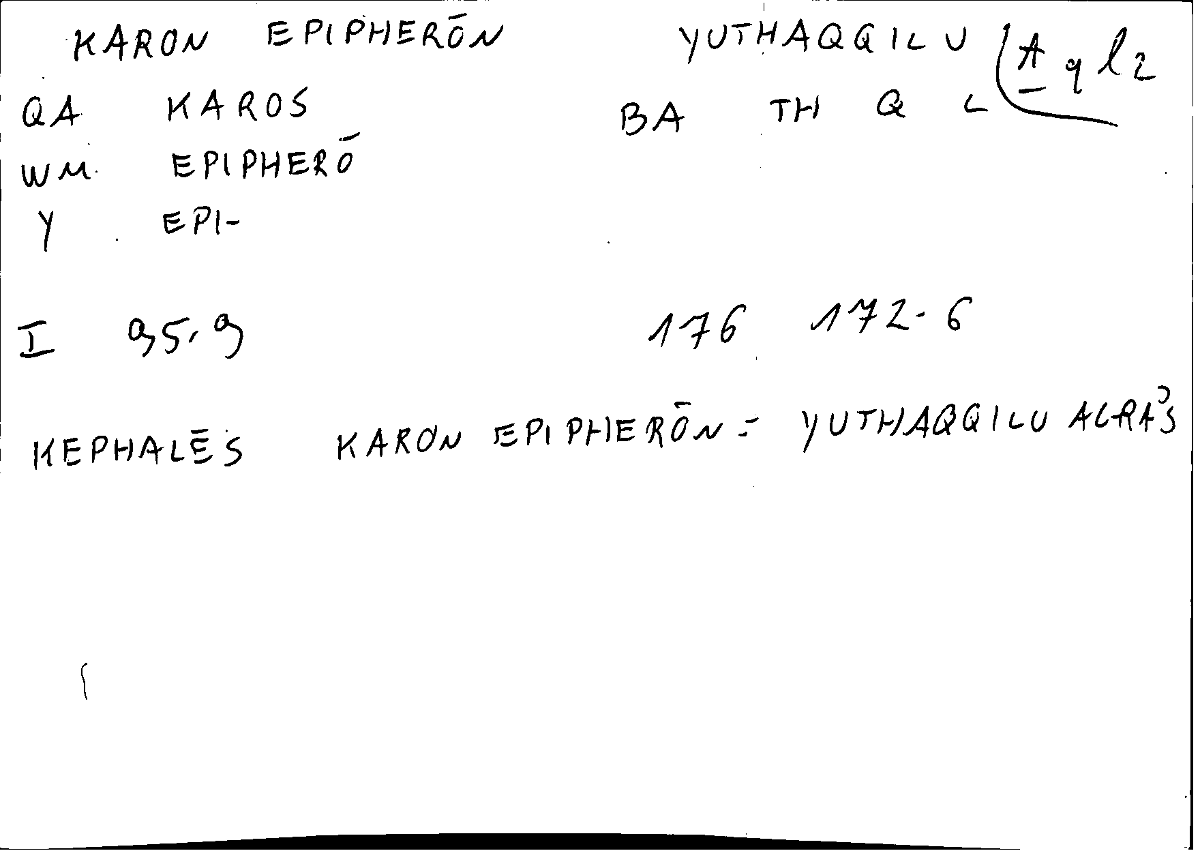 KARON EPIPHERŌN YUTHAQQILU A q l 2
QA KAROS BA TH Q L
WM. EPIPHERŌ
Y EPI-
I 95,9 176 172-6
KEPHALĒS KARON EPIPHERŌN = YUTHAQQILU ALRA'S